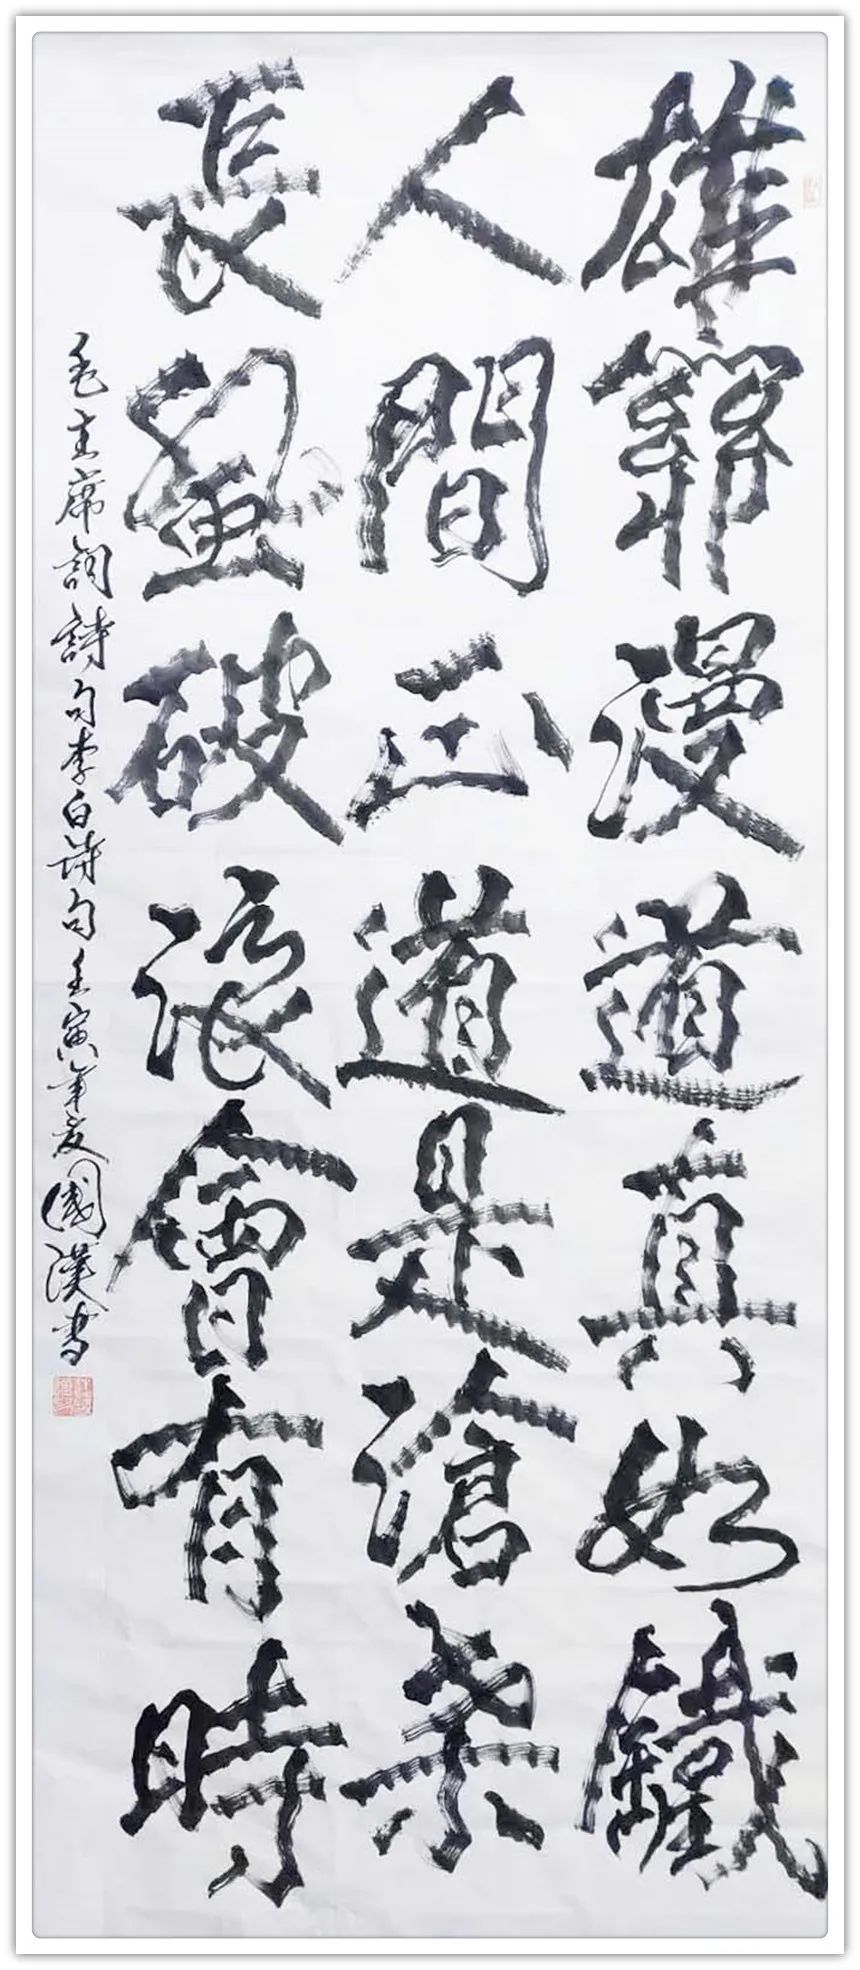 雄關漫道真如鐵
人間正道是滄桑
長風破浪會有時
毛主席詞詩句李白诗句壬寅年夏國漢書